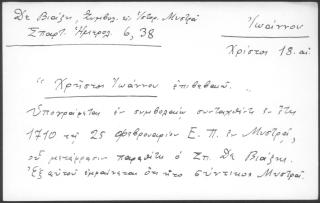 Δε Βιάζης, Συμβολ. εις Ιστορ. Μυστρά
Σπαρτ. Ημερολ. 6, 38
Ἰωάννου
Χρῆστος 18. αἰ
"Χρῆστος Ἰωάννου ἐπιβεβαιῶ. "
Ὑπογράφεται ἐν συμβολαίῳ συνταχθέντι ἐν ἔτει
1710 τῇ 25 Φεβρουαρίου Ε. Π. ἐν Μυστρᾷ,
οὗ μετάφρασιν παραθέτει ὁ Σπ. Δε Βιάζης.
Ἐξ αὐτοῦ ἐμφαίνεται ὅτι ἦτο σύντικος Μυστρᾶ.